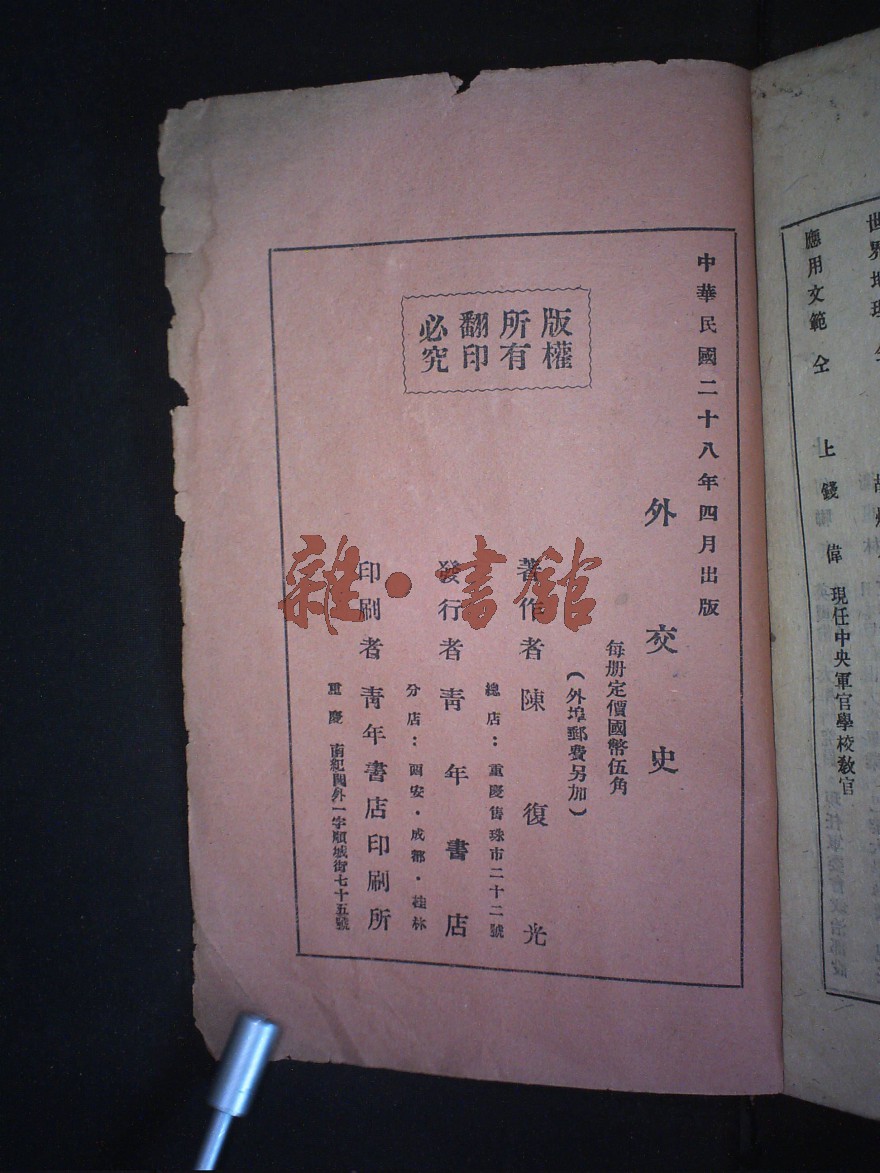 世界地理 仝
應用文範 仝 上 錢 偉 現任中央軍官學校教官
中華民國二十八年四月出版
外交史
每册定價國幣伍角
(外埠郵費另加)
著作者 陳復光
總店:重慶售珠市二十二號
發行者 青年書店
分店:西安·成都·桂林
印刷者 青年書店印刷所
重慶 南紀門外一字順城街七十五號
版權
所有
翻印
必究
雜·書館